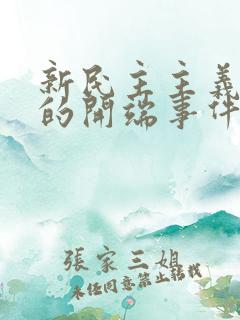 新民主主義
的開端事件
張家三姐
未任同意禁止轉載